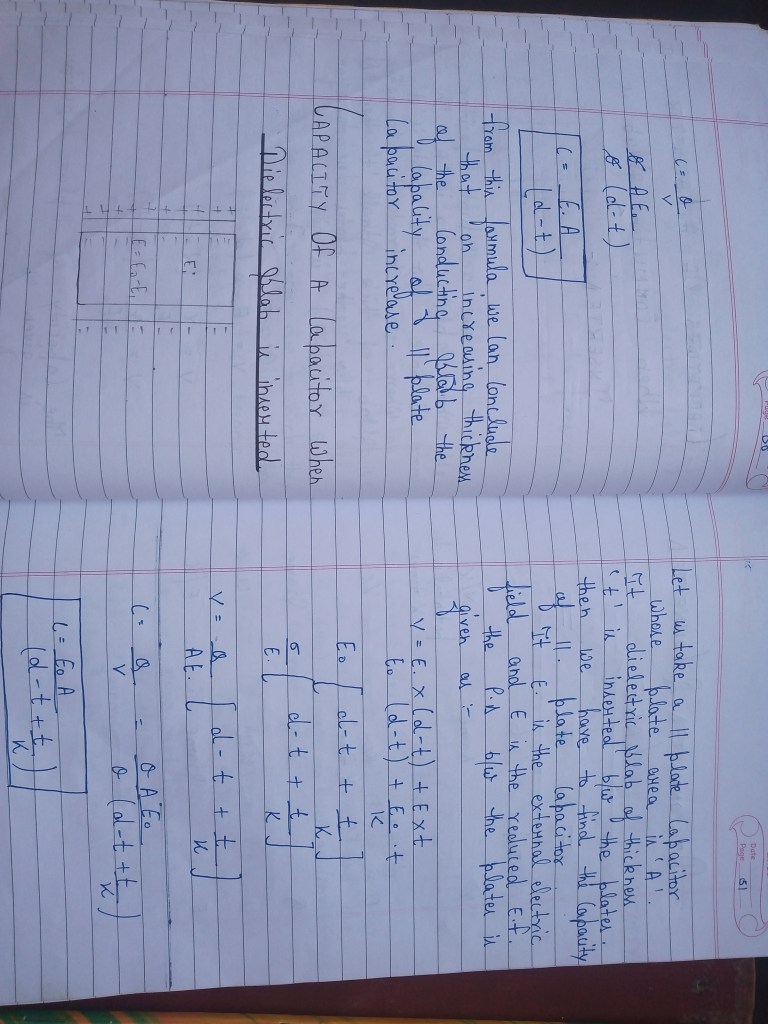 C = Q
V
Q A E₀
Q (d-t)
C = E. A
(d-t)
from this formula we can conclude
that on increasing thickness
of the conducting slab the
capacity of || plate
capacitor increase.
CAPACITY OF A Capacitor When
Dielectric slab is inserted
+ + + + + + + + +
- - - - - - - - -
Eᵢ
E = E₀-Eᵢ
Page
Date
Page 151
Let us take a || plate capacitor
whose plate area is 'A'.
If dielectric slab of thickness
't' is inserted b/w the plates.
then we have to find the capacity
of ||. plate capacitor
If E. is the external electric
field and E is the reduced E.f.
the P.D b/w the plates is
given as :-
V = E. x (d-t) + E x t
E₀ (d-t) + E₀ . t
K
E₀ [ d-t + t ]
K
σ [ d-t + t ]
E. K
V = Q [ d-t + t ]
AE. K
C = Q = Q A E₀
V Q (d-t+t)
K
C = E₀ A
(d-t+t)
K